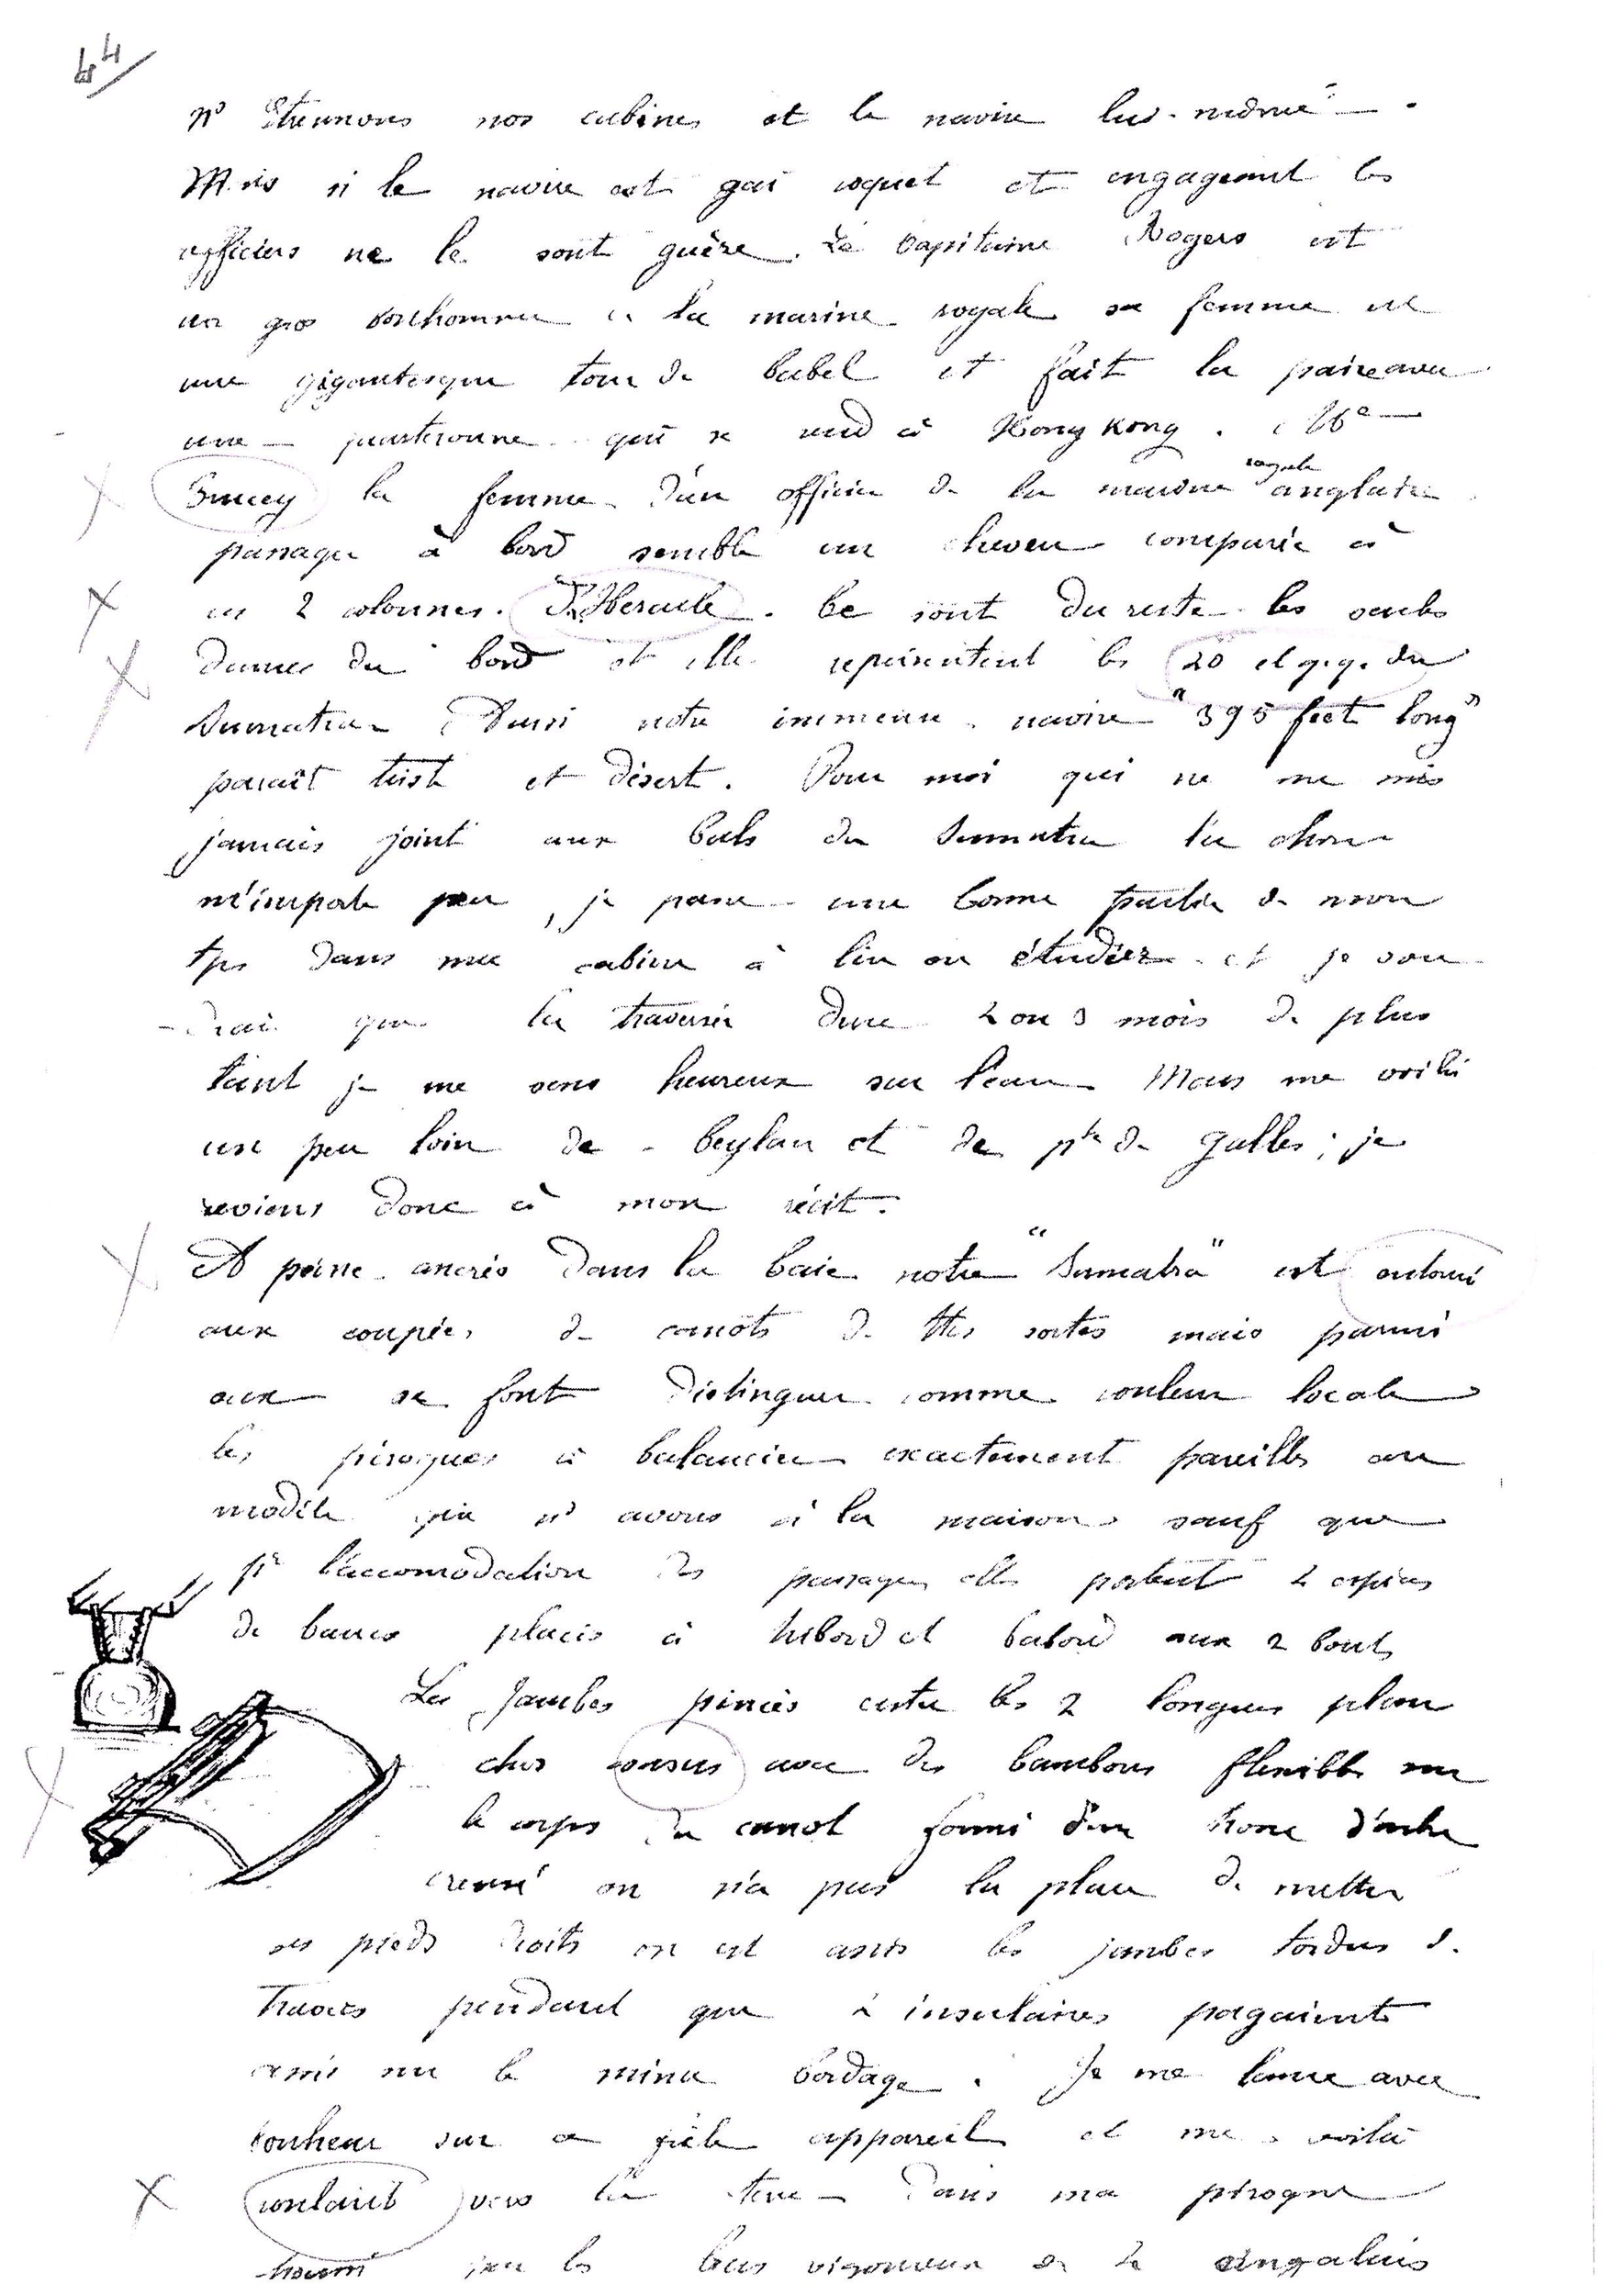 44
ns étrennons nos cabines et le navire lui-même.
Mais si le navire est gai coquet et engageant les
officiers ne le sont guère. Le Capitaine Rogers est
un gros bonhomme à la marine royale sa femme est
une gigantesque tour de babel et fait la paire avec
une qui se rend à Hong Kong. Me
la femme d'un officier de la marine royale anglaise
passager à bord semble un cheveu comparée à
ces 2 colonnes d'Hercule. Ce sont du reste les seules
dames du bord et elles représentent les 20 et q.q. du
Sumatra. Aussi notre immense navire "395 feet long"
paraît triste et désert. Pour moi qui ne me suis
jamais joint aux bals du Sumatra la chose
m'importe peu, je passe une bonne partie de mon
tps dans ma cabine à lire ou étudier et je vou-
-drai que la traversée dure 2 ou 3 mois de plus
tant je me sens heureux sur l'eau. Mais me voilà
un peu loin de Ceylan et de pte de Galles ; je
reviens donc à mon récit.
A peine ancrés dans la baie notre "Sumatra" est entouré
aux coupées de canots de ttes sortes mais parmi
eux se font distinguer comme couleur locale
les pirogues à balancier exactement pareilles au
modèle que ns avons à la maison sauf que
pr l'accomodation des passagers elles portent 2 espèces
de bancs placés à tribord et babord aux 2 bouts
Les jambes pincées entre les 2 longues plan
ches avec des bambous flexibles sur
le corps du canot formé d'un tronc d'arbre
creusé on n'a pas la place de mettre
ses pieds droits on est assis les jambes tordues de
travers pendant que insulaires pagaient
assis sur le mince bordage. Je me lance avec
bonheur sur ce frêle appareil et me voilà
voulant vers la terre dans ma pirogue
par les bras vigoureux de 2 cingalais